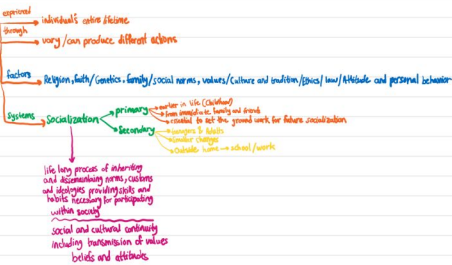 experienced through
individual's entire lifetime
vary / can produce different actions
factors
Religion, faith / Genetics, family / social norms, values / Culture and tradition / Ethics / law / Attitude and personal behavior
systems
Socialization
primary
earlier in life (Childhood)
from immediate family and friends
crucial to set the ground work for future socialization
Secondary
teenagers & Adults
smaller changes
Outside home → school / work
life long process of inheriting
and disseminating norms, customs
and ideologies providing skills and
habits necessary for participating
within society
social and cultural continuity
including transmission of values
beliefs and attitudes